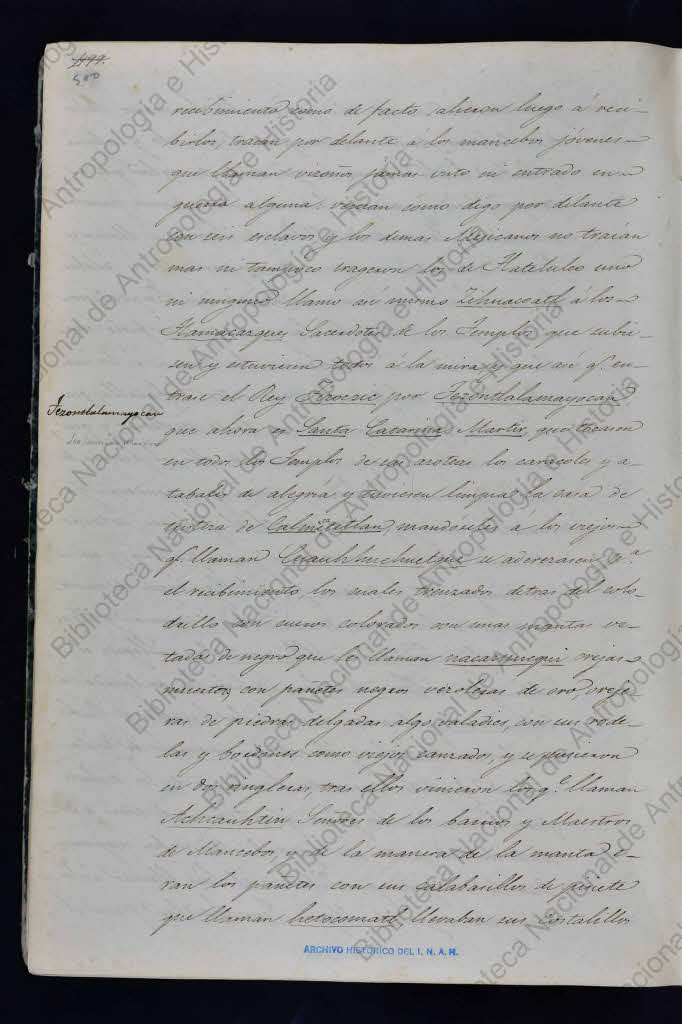 499.
500
recibimiento como de facto salieron luego á reci-
birlos, traían por delante á los mancebos jóvenes
que llaman visoños jamas visto ni entrado en
guerra alguna: venian como digo por delante
con seis esclavos, y los demas Mejicanos no traían
mas ni tampoco trageron los de Tlatelulco uno
ni ninguno llamo asi mismo Zihuacoatl á los
Tlamacazques, Sacerdotes de los Templos que subie-
sen y estuviesen todos á la mira y que asi q.e en-
trase el Rey Tizoczic por Tezontlalamayocan
que ahora es Santa Catarina Martir, que tocasen
en todos los Templos de sus azoteas los caracoles y a-
tabales de alegria y tuviesen limpia la casa de
tristeza de Calmecatitlan, mandoseles a los viejos
q.e llaman Cuauhhuehuetque se aderezasen p.a
el recibimiento, los cuales trenzados detras del colo-
drillo con cueros colorados con unas mantas ve-
tadas de negro que le llaman nacazmuequi orejas
muertas, con pañetes negros
de oro, oreje-
ras de piedras delgadas algo valadies, con sus rode-
las y bordones como viejos canzados, y se pusieron
en dos ringleras, tras ellos vinieron los q.e llaman
Achcauhtin Señores de los barrios y Maestros
de Mancebos, y de la manera de la manta e-
ran los pañetes con sus calabasillos de pisiete
que llaman hetecomatl llevaban sus costalillos
Tezontlalamayocan
ARCHIVO HISTORICO DEL I. N. A. H.
Biblioteca Nacional de Antropología e Historia